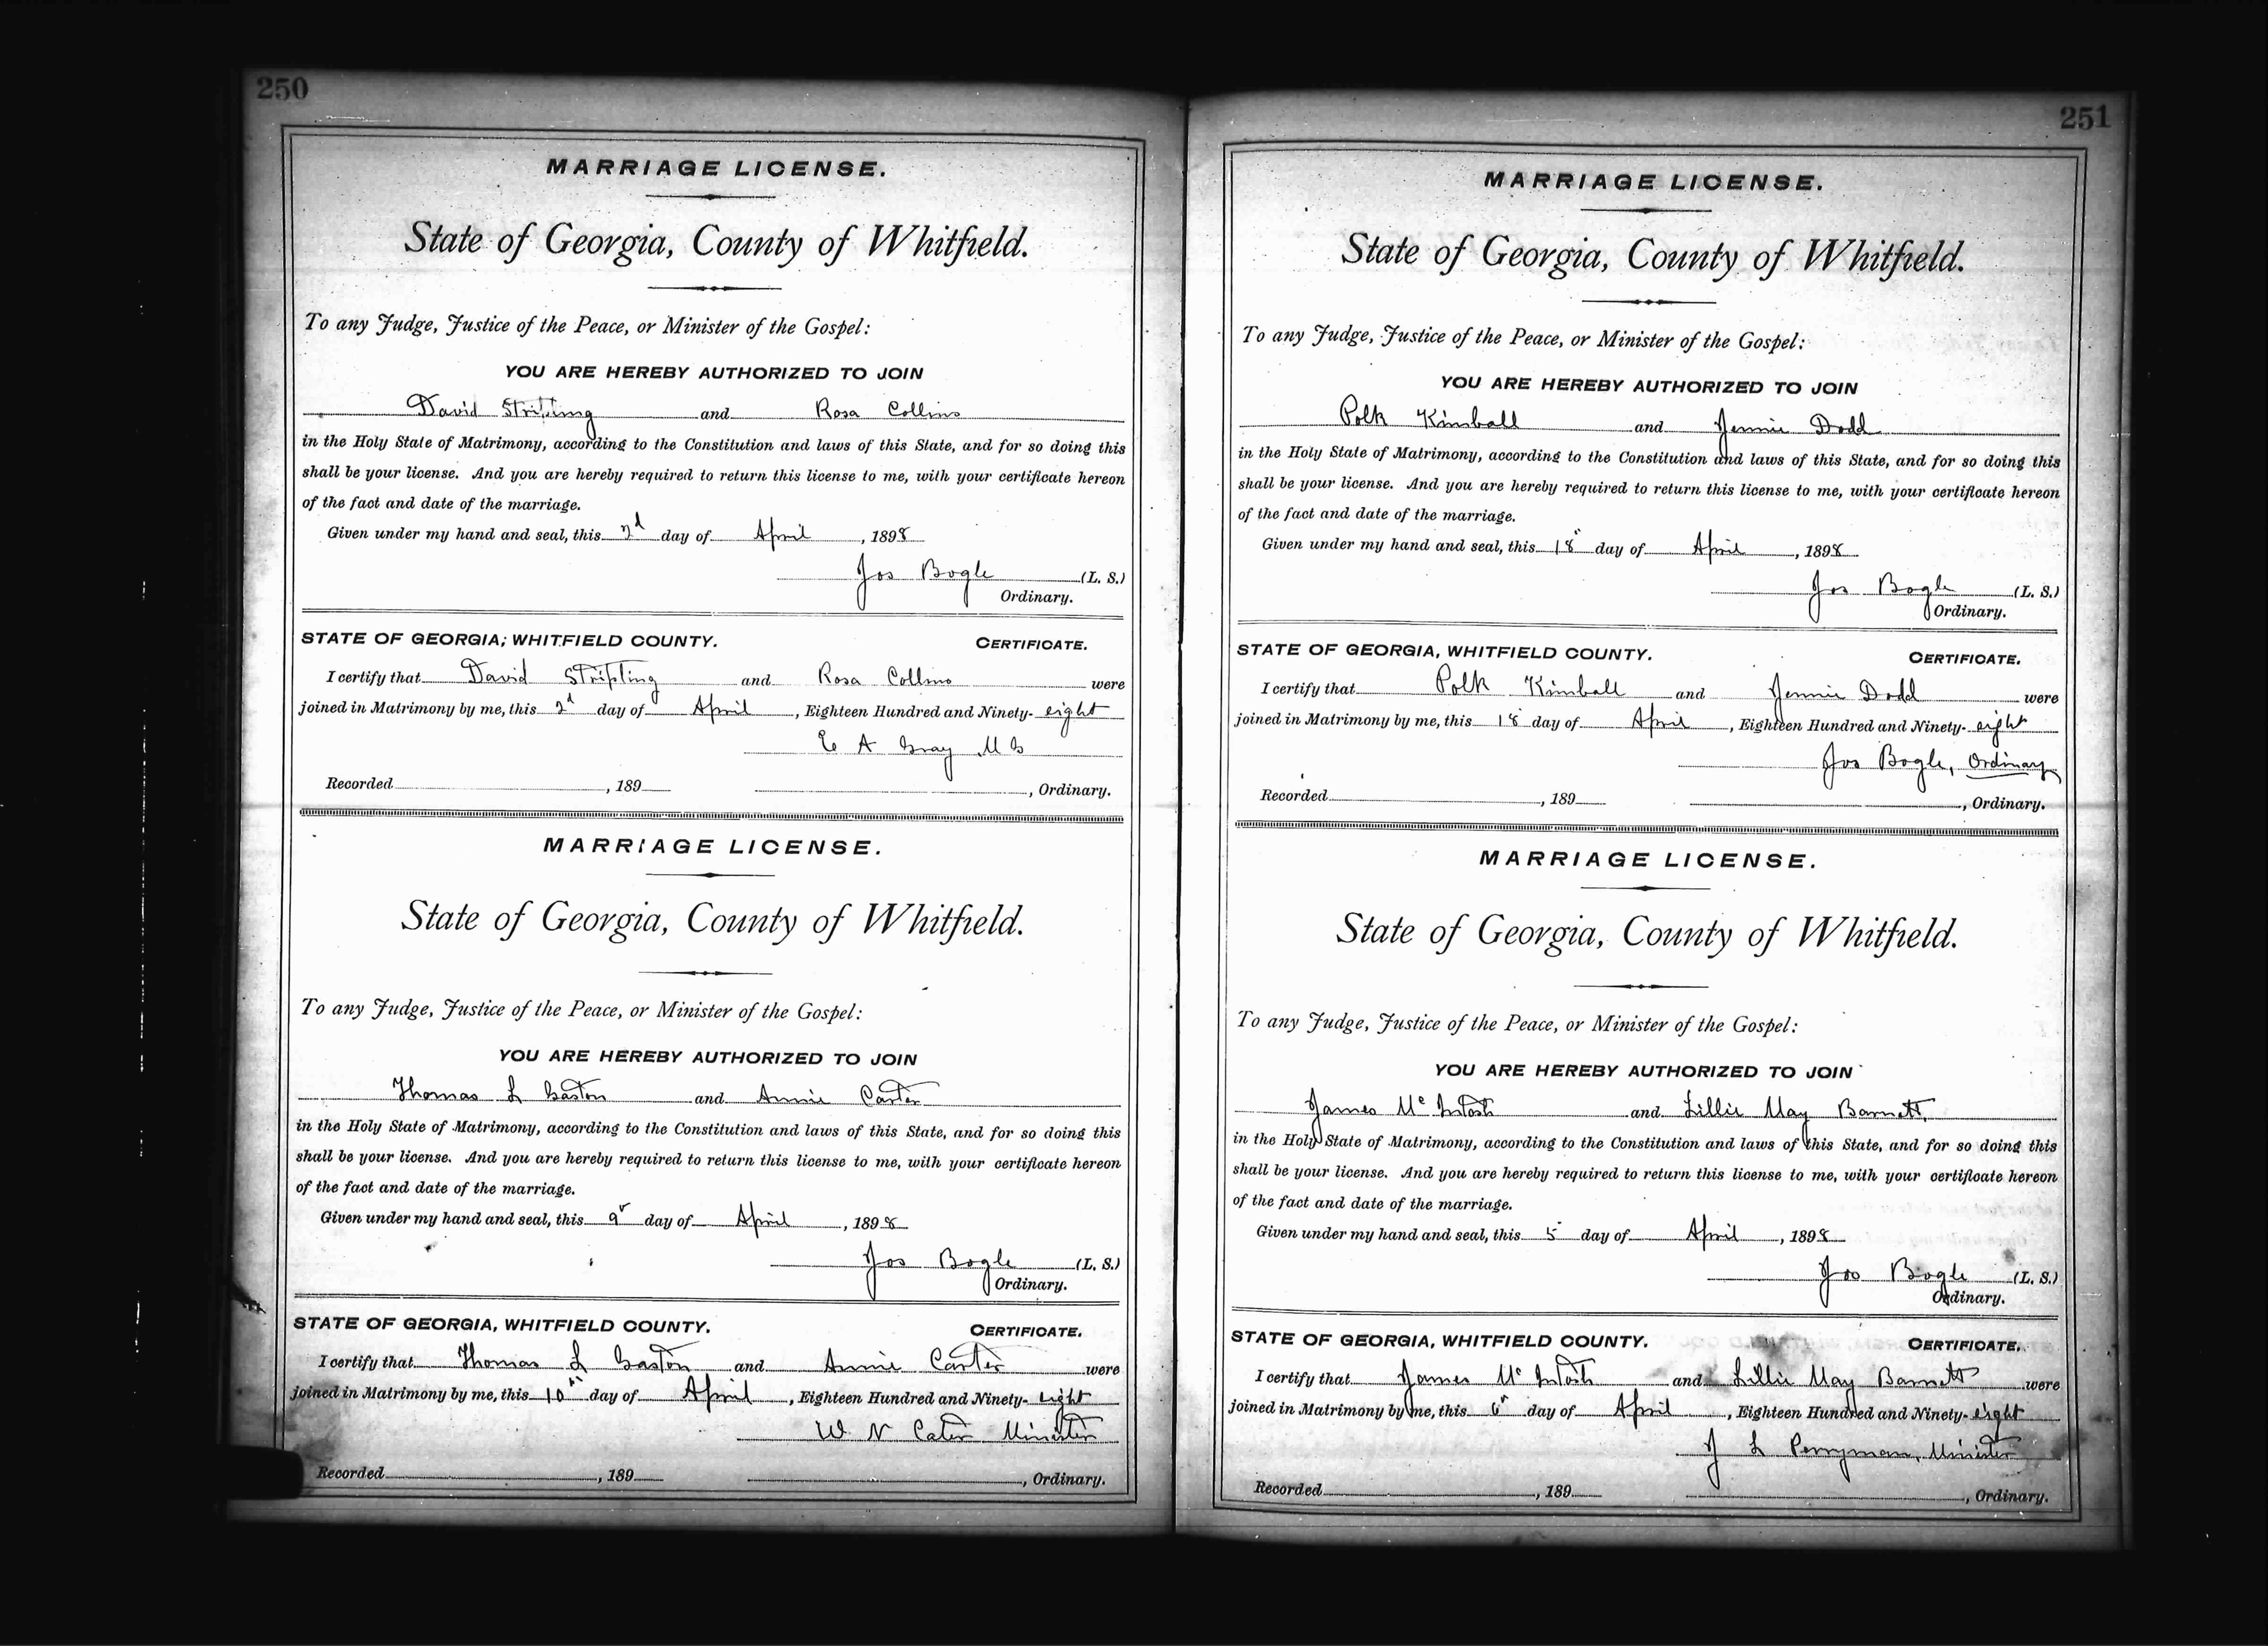 250
MARRIAGE LICENSE.
State of Georgia, County of Whitfield.
To any Judge, Justice of the Peace, or Minister of the Gospel:
YOU ARE HEREBY AUTHORIZED TO JOIN
David Stripling and Rosa Collins
in the Holy State of Matrimony, according to the Constitution and laws of this State, and for so doing this
shall be your license. And you are hereby required to return this license to me, with your certificate hereon
of the fact and date of the marriage.
Given under my hand and seal, this 2d day of April, 1898
Jos Bogle (L. S.)
Ordinary.
STATE OF GEORGIA, WHITFIELD COUNTY. CERTIFICATE.
I certify that David Stripling and Rosa Collins were
joined in Matrimony by me, this 2d day of April, Eighteen Hundred and Ninety-eight
E A Gray M G
Recorded , 189 , Ordinary.
MARRIAGE LICENSE.
State of Georgia, County of Whitfield.
To any Judge, Justice of the Peace, or Minister of the Gospel:
YOU ARE HEREBY AUTHORIZED TO JOIN
Thomas L Gaston and Annie Carter
in the Holy State of Matrimony, according to the Constitution and laws of this State, and for so doing this
shall be your license. And you are hereby required to return this license to me, with your certificate hereon
of the fact and date of the marriage.
Given under my hand and seal, this 9 day of April, 1898
Jos Bogle (L. S.)
Ordinary.
STATE OF GEORGIA, WHITFIELD COUNTY. CERTIFICATE.
I certify that Thomas L Gaston and Annie Carter were
joined in Matrimony by me, this 10th day of April, Eighteen Hundred and Ninety-eight
W N Cater Minister
Recorded , 189 , Ordinary.
251
MARRIAGE LICENSE.
State of Georgia, County of Whitfield.
To any Judge, Justice of the Peace, or Minister of the Gospel:
YOU ARE HEREBY AUTHORIZED TO JOIN
Polk Kimball and Jennie Dodd
in the Holy State of Matrimony, according to the Constitution and laws of this State, and for so doing this
shall be your license. And you are hereby required to return this license to me, with your certificate hereon
of the fact and date of the marriage.
Given under my hand and seal, this 18 day of April, 1898
Jos Bogle (L. S.)
Ordinary.
STATE OF GEORGIA, WHITFIELD COUNTY. CERTIFICATE.
I certify that Polk Kimball and Jennie Dodd were
joined in Matrimony by me, this 18 day of April, Eighteen Hundred and Ninety-eight
Jos Bogle, Ordinary
Recorded , 189 , Ordinary.
MARRIAGE LICENSE.
State of Georgia, County of Whitfield.
To any Judge, Justice of the Peace, or Minister of the Gospel:
YOU ARE HEREBY AUTHORIZED TO JOIN
James McIntosh and Lillie May Barnett,
in the Holy State of Matrimony, according to the Constitution and laws of this State, and for so doing this
shall be your license. And you are hereby required to return this license to me, with your certificate hereon
of the fact and date of the marriage.
Given under my hand and seal, this 5 day of April, 1898
Jos Bogle (L. S.)
Ordinary.
STATE OF GEORGIA, WHITFIELD COUNTY. CERTIFICATE.
I certify that James McIntosh and Lillie May Barnett were
joined in Matrimony by me, this 6 day of April, Eighteen Hundred and Ninety-eight
J L Perryman, Minister
Recorded , 189 , Ordinary.